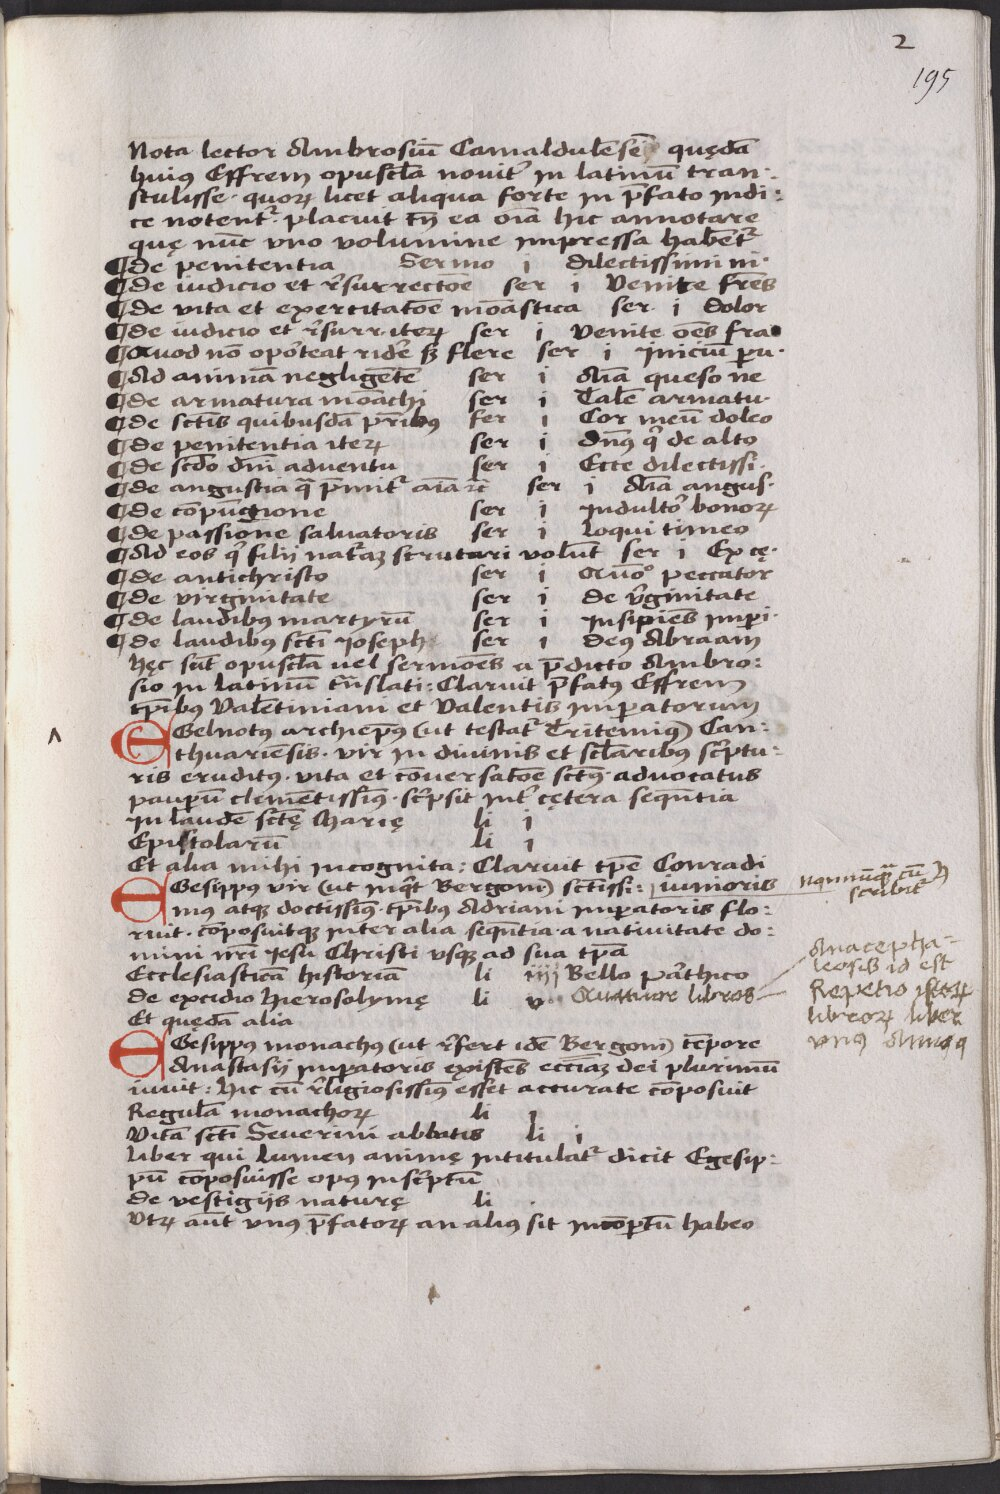 2
195
Nota lector Ambrosiū Camaldulēsē quędā
huiꝰ Effrem opuscl̄a nouit᷑ in latinū tran-
stulisse · quoꝝ licet aliqua forte in p̄fato indi:
ce notent᷑ · placuit tn̄ ea oīa hic annotare
quę nūc vno volumine impressa habēt᷑
¶ de penitentia Sermo i dilectissimi ni·
¶ de iudicio et r̄surrectōe ser i Venite fr̄es
¶ de vita et exercitatōe mōastica ser i dolor
¶ de iudicio et r̄surr. iteꝝ ser i Venite oēs fra
¶ Quod nō opōteat ridē sꝫ flere ser i Iniciū pu·
¶ Ad animā negligētē ser i Aīa queso ne
¶ de armatura mōachi ser i Talē armatu·
¶ de sctīs quibusdā pr̄ibꝰ ser i Cor meū doleo
¶ de penitentia iteꝝ ser i dn̄ꝰ q̄ de altꝰ
¶ de scd̄o dn̄i aduentu ser i Ecce dilectissi·
¶ de angustia q̄ p̄mit᷑ aīa rc̄ ser i Aīa angus·
¶ de cōpūgione ser i Indultoꝛ᷑ bonoꝝ
¶ de passione saluatoris ser i loqui timeo
¶ Ad eos q̄ filij nat᷑aꝫ scrutari volūt ser i Ex cę·
¶ de antichristo ser i Quōo peccator
¶ de virginitate ser i de v̄ginitate
¶ de laudibꝰ martyrū ser i Insipiēs imꝑi·
¶ de laudibꝰ sctī Joseph ser i deꝰ Abraam
hęc sūt opuscl̄a uel sermōes a p̄dicto Ambro:
sio in latinū trn̄slati : Claruit p̄fatꝰ Effrem
tp̄ibus Valentiniani et Valentis imꝑatorum
EGelnotꝰ archiepꝰ̄ (ut testat᷑ Tritemiꝰ) Can:
thuariēsis · vir in diuinis et scl̄aribus scͥptu:
ris eruditꝰ · vita et cōuersatōe sctꝰ̄ · aduocatus
pauꝑū clemētissimꝰ · scͥpsit int᷑ cętera seqn̄tia
In laudē sctę̄ Marię li i
Epistolarū li i
Et alia mihi incognita : Claruit tp̄e Conradi
EGesippꝰ vir (ut inq̄t Bergom̄) sctīssi: | iunioris
mꝰ atqꝫ doctissimꝰ · tp̄ibus Adriani imꝑatoris flo:
ruit · cōposuitqꝫ inter alia seqn̄tia · a natiuitate do:
mini nr̄i Jesu Christi vsqꝫ ad sua tp̄a
Ecclesiasticā historiā li iiij Bello pa᷑thico
de excidio hierosolymę li v·· Quattuor libros
Et quędā alia
EGesippꝰ monachꝰ (ut r̄fert idē Bergom̄) tēpore
Anastasij imꝑatoris existēs eccl̄iaꝫ dei plurimū
iuuit : hic cū r̄ligiosissimꝰ esset accurate cōposuit
Regulā monachoꝝ li i
Vitā sctī Seuerini abbatis li i
liber qui lumen animę intitulat᷑ dicit Egesip-
pū cōposuisse opꝰ inscͥptū
de vestigijs naturę li ·
Vtꝝ aūt vnꝰ p̄fatoꝝ an aliꝰ sit incōꝑtū habeo
nōnunqꝫ cū h
scribit᷑
Anacepha-
leosis id est
Repetio istoꝝ
libroꝝ liber
vnꝰ